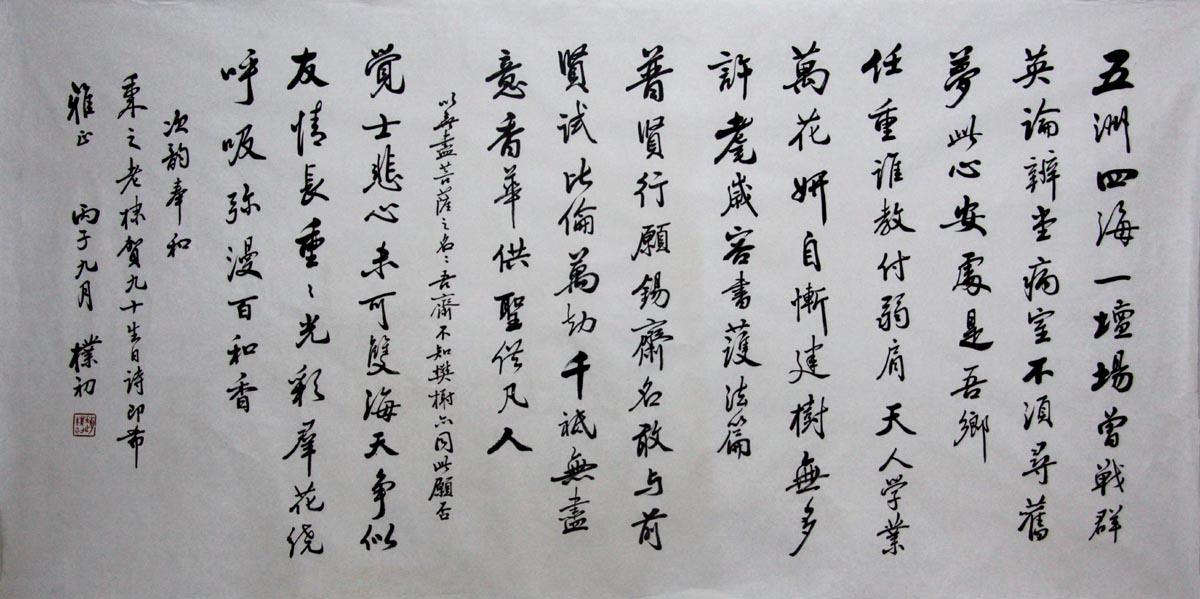 五洲四海一壇場曾戰群
英論辨堂病室不須尋舊
夢此心安處是吾鄉
任重誰教付弱肩天人学業
萬花妍自慚建樹無多
許耄歲容書護法篇
普賢行願錫齋名敢与前
賢試比倫萬劫千祇無盡
意香華供聖供凡人
以無盡菩薩之名名吾齋不知樊榭亦同此願否
覺士悲心未可雙海天争似
友情長重重光彩羣花绕
呼吸弥漫百和香
次韵奉和
秉之老棣賀九十生日诗即希
雅正 丙子九月 樸初